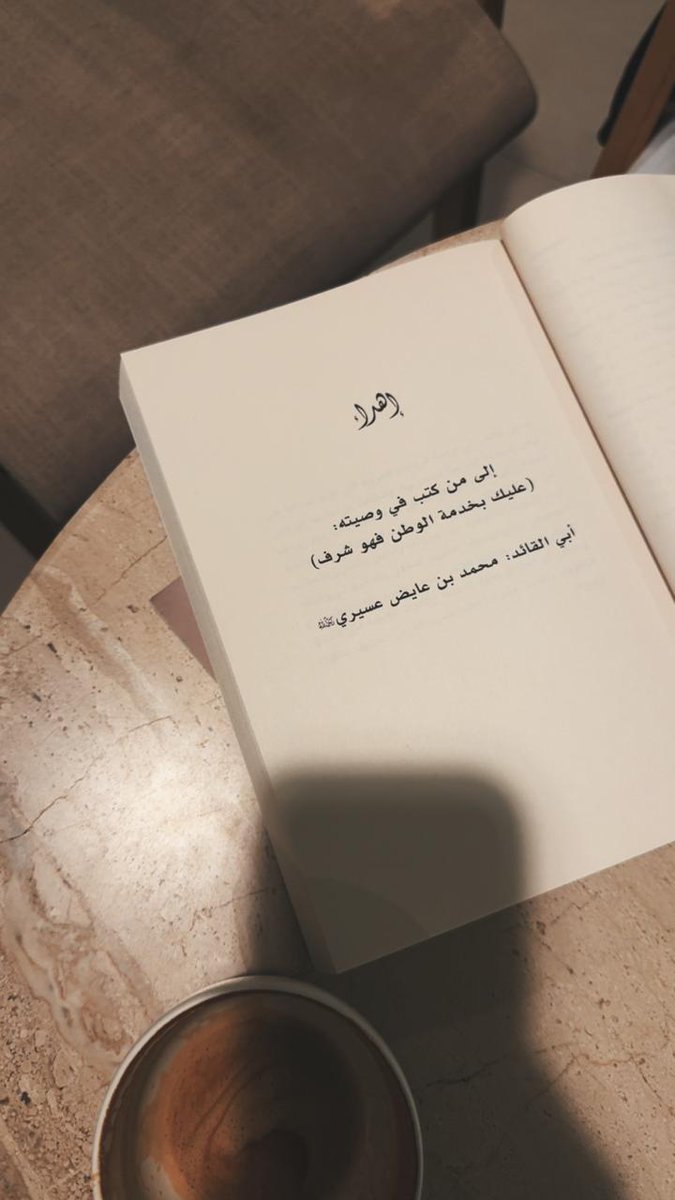 إهداء
إلى من كتب في وصيته:
(عليك بخدمة الوطن فهو شرف)
أبي القائد: محمد بن عايض عسيري